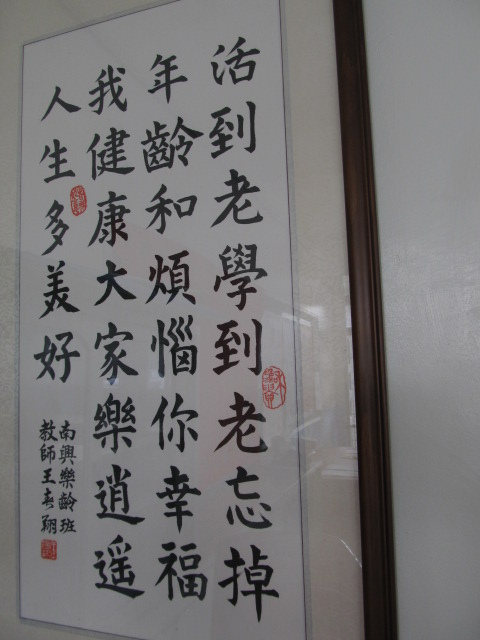 活到老學到老忘掉
年齡和煩惱你幸福
我健康大家樂逍遥
人生多美好
南興樂齡班
教師王春翔